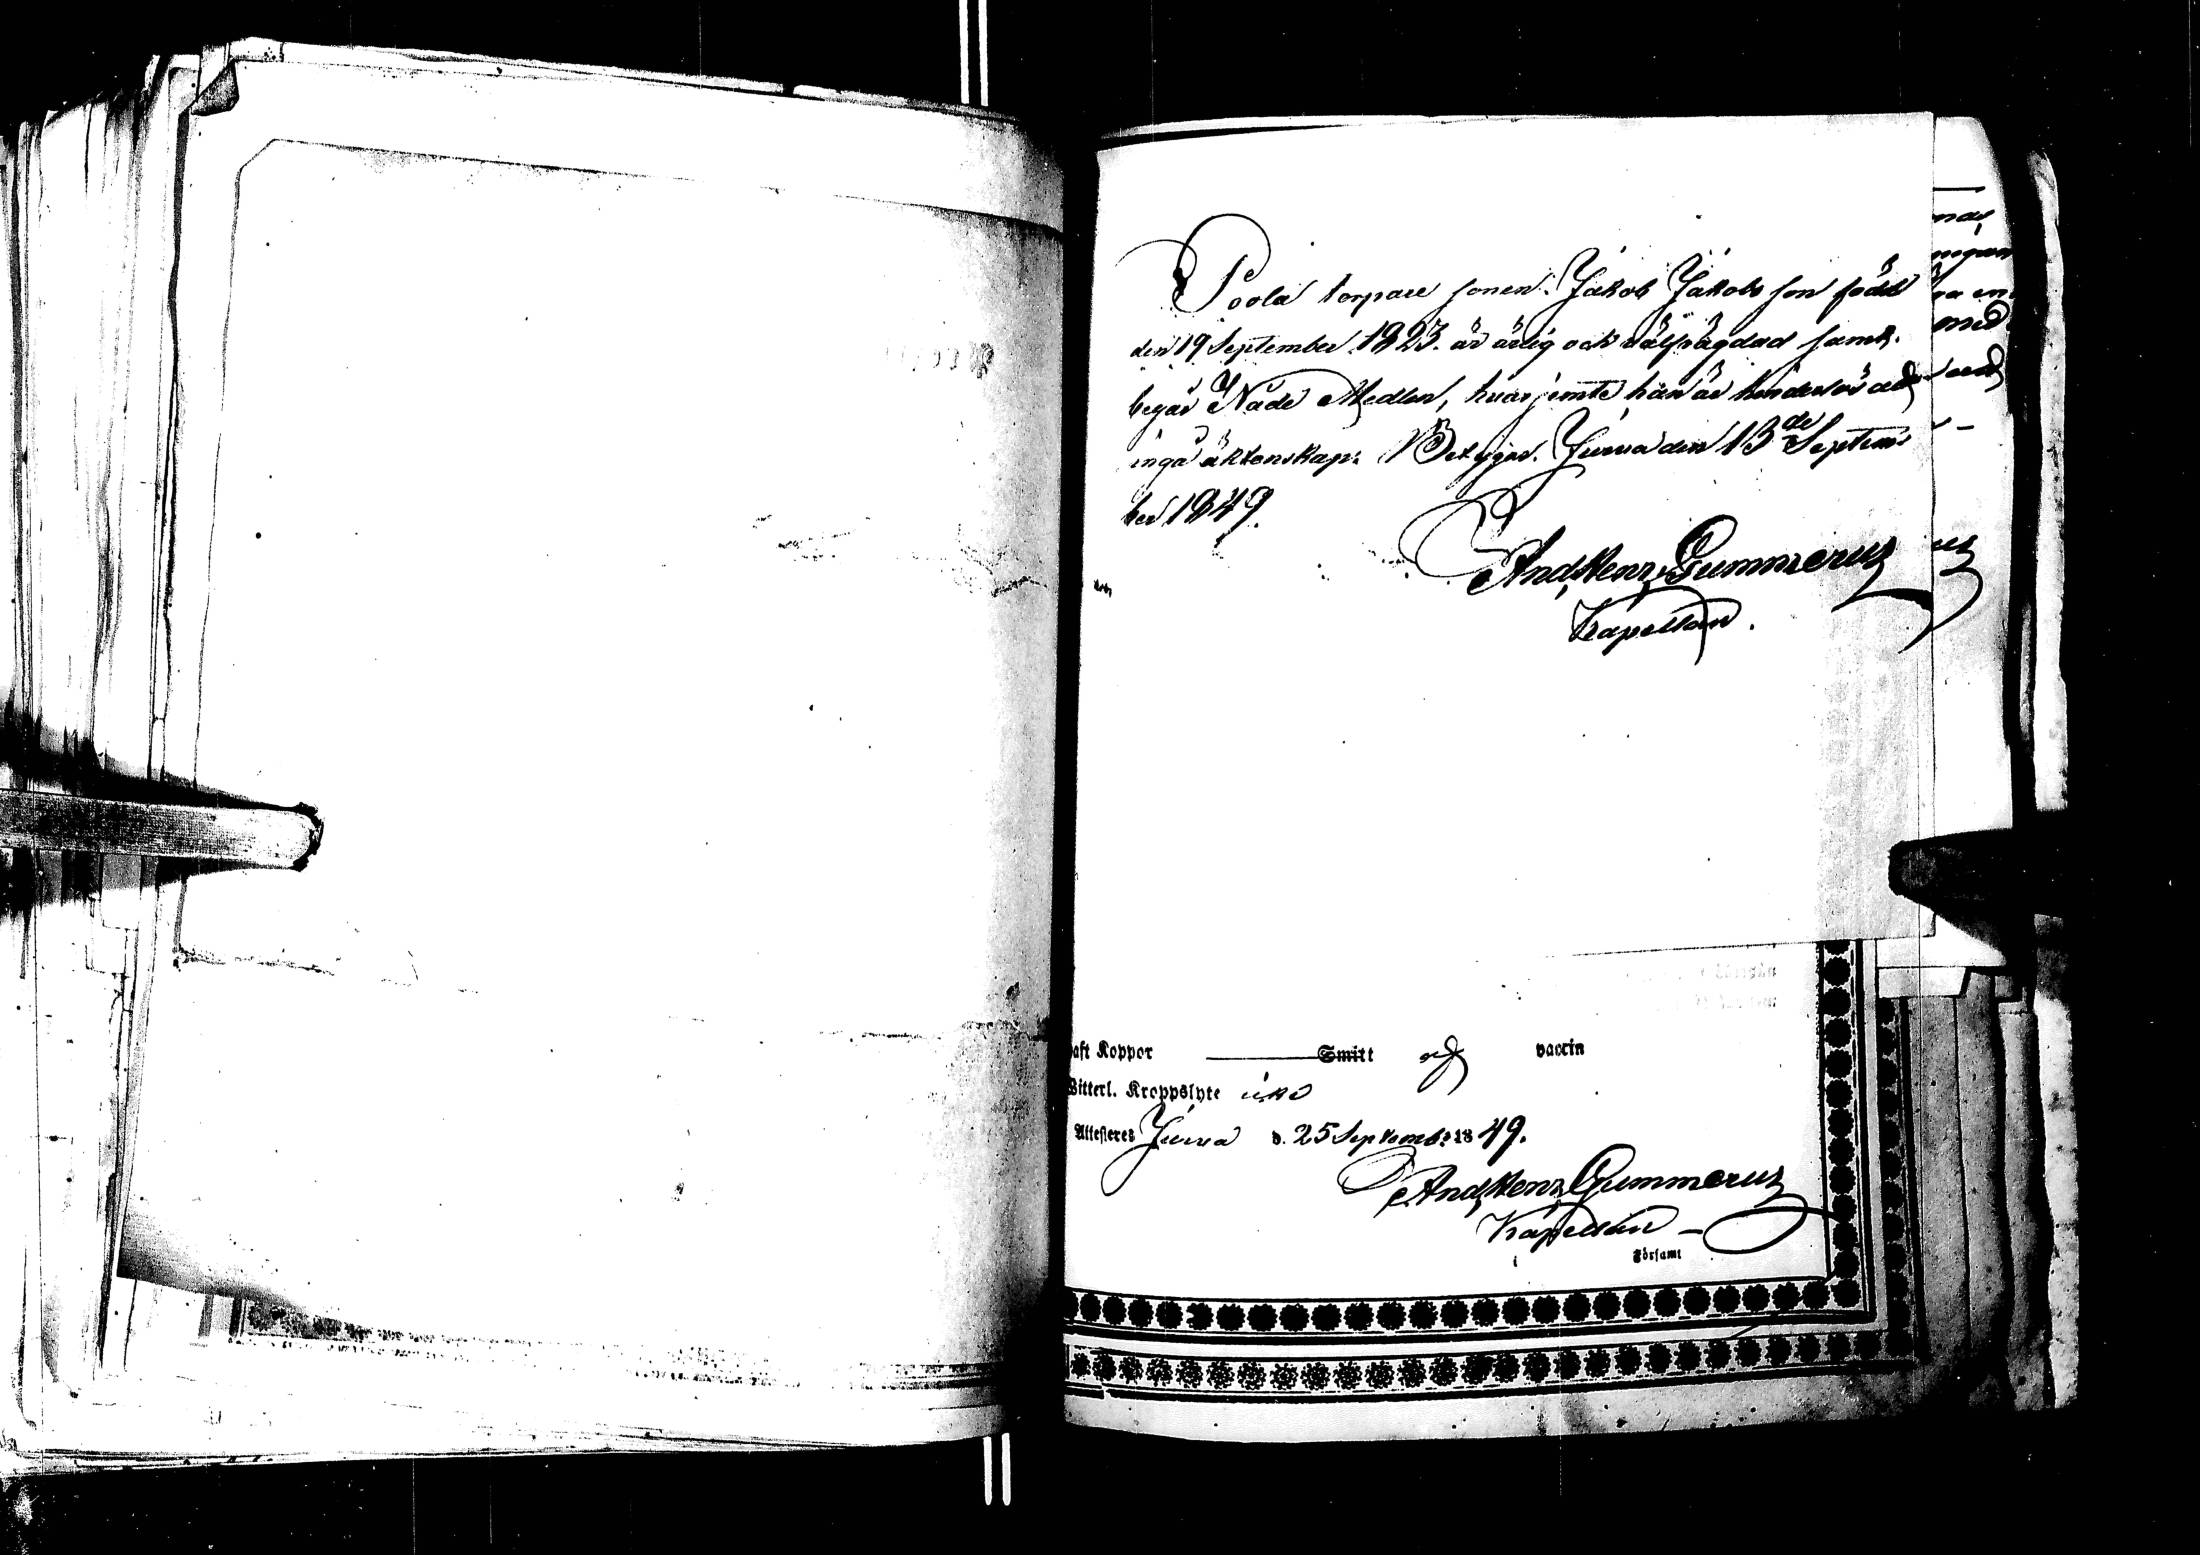 Poola torpare sonen Jakob Jakobs son född
den 19 September 1823. är ärlig och välfrägdad samt
begår Nade Medlen, hvarjemte han är hinderlös att
ingå äktenskap: Betygar. Jurva den 13de Septem
ber 1849.
And. Henr. Gummerus
Kapellan.
haft Koppor Smitt vaccin
Witterl. Kroppslyte icke
Attesteres Jurva d. 25 Septemb: 1849.
And. Henr. Gummerus
Kapellan
Församl